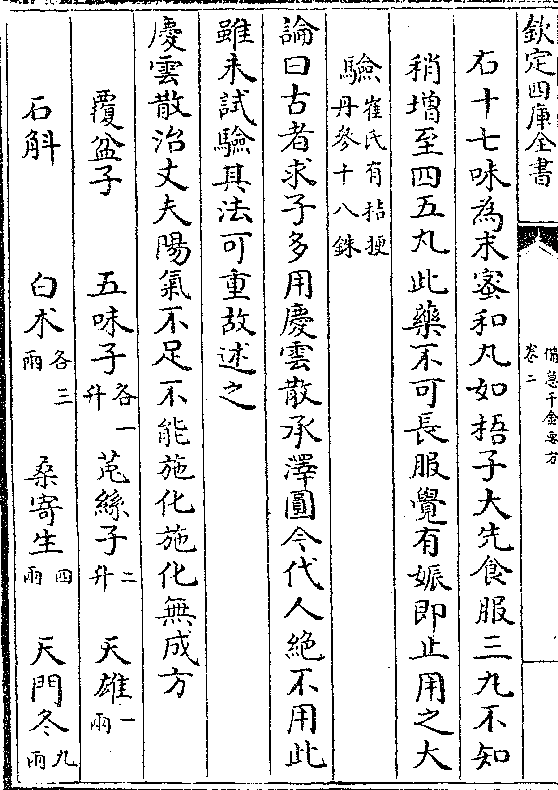 欽定四庫全書
備急千金要方
卷二
右十七味為末蜜和丸如梧子大先食服三丸不知
稍增至四五丸此藥不可長服覺有娠即止用之大
驗崔氏有桔梗丹參十八銖
論曰古者求子多用慶雲散承澤圓今代人絕不用此
雖未試驗其法可重故述之
慶雲散治丈夫陽氣不足不能施化施化無成方
覆盆子 五味子各一升 菟絲子二升 天雄一兩
石斛 白朮各三兩 桑寄生四兩 天門冬九兩